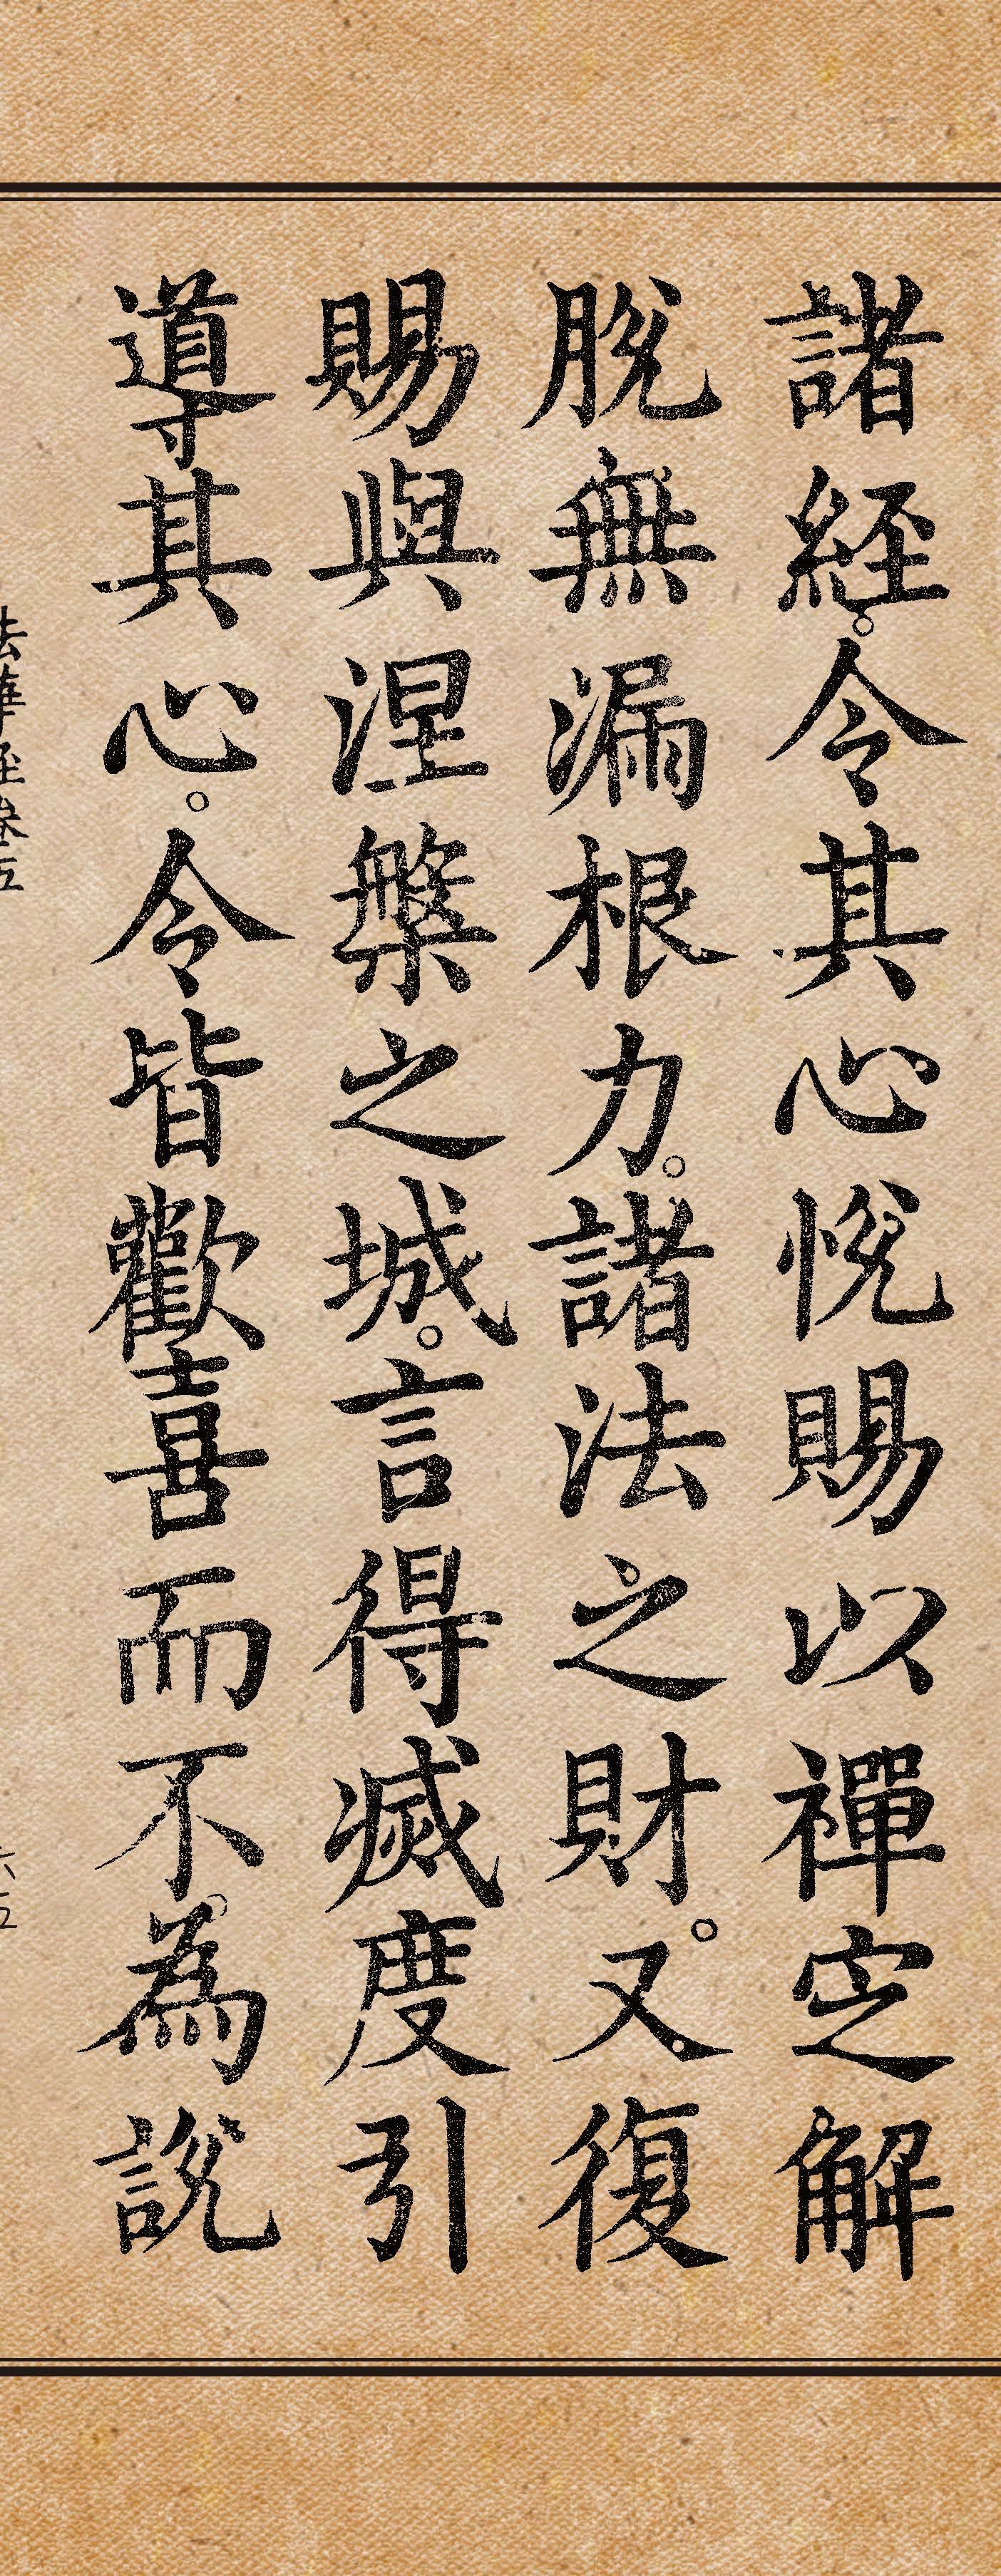 諸經。令其心悅賜以禪定解
脫無漏根力。諸法之財。又復
賜與涅槃之城。言得滅度引
導其心。令皆歡喜而不。為說
法華經卷五
六五